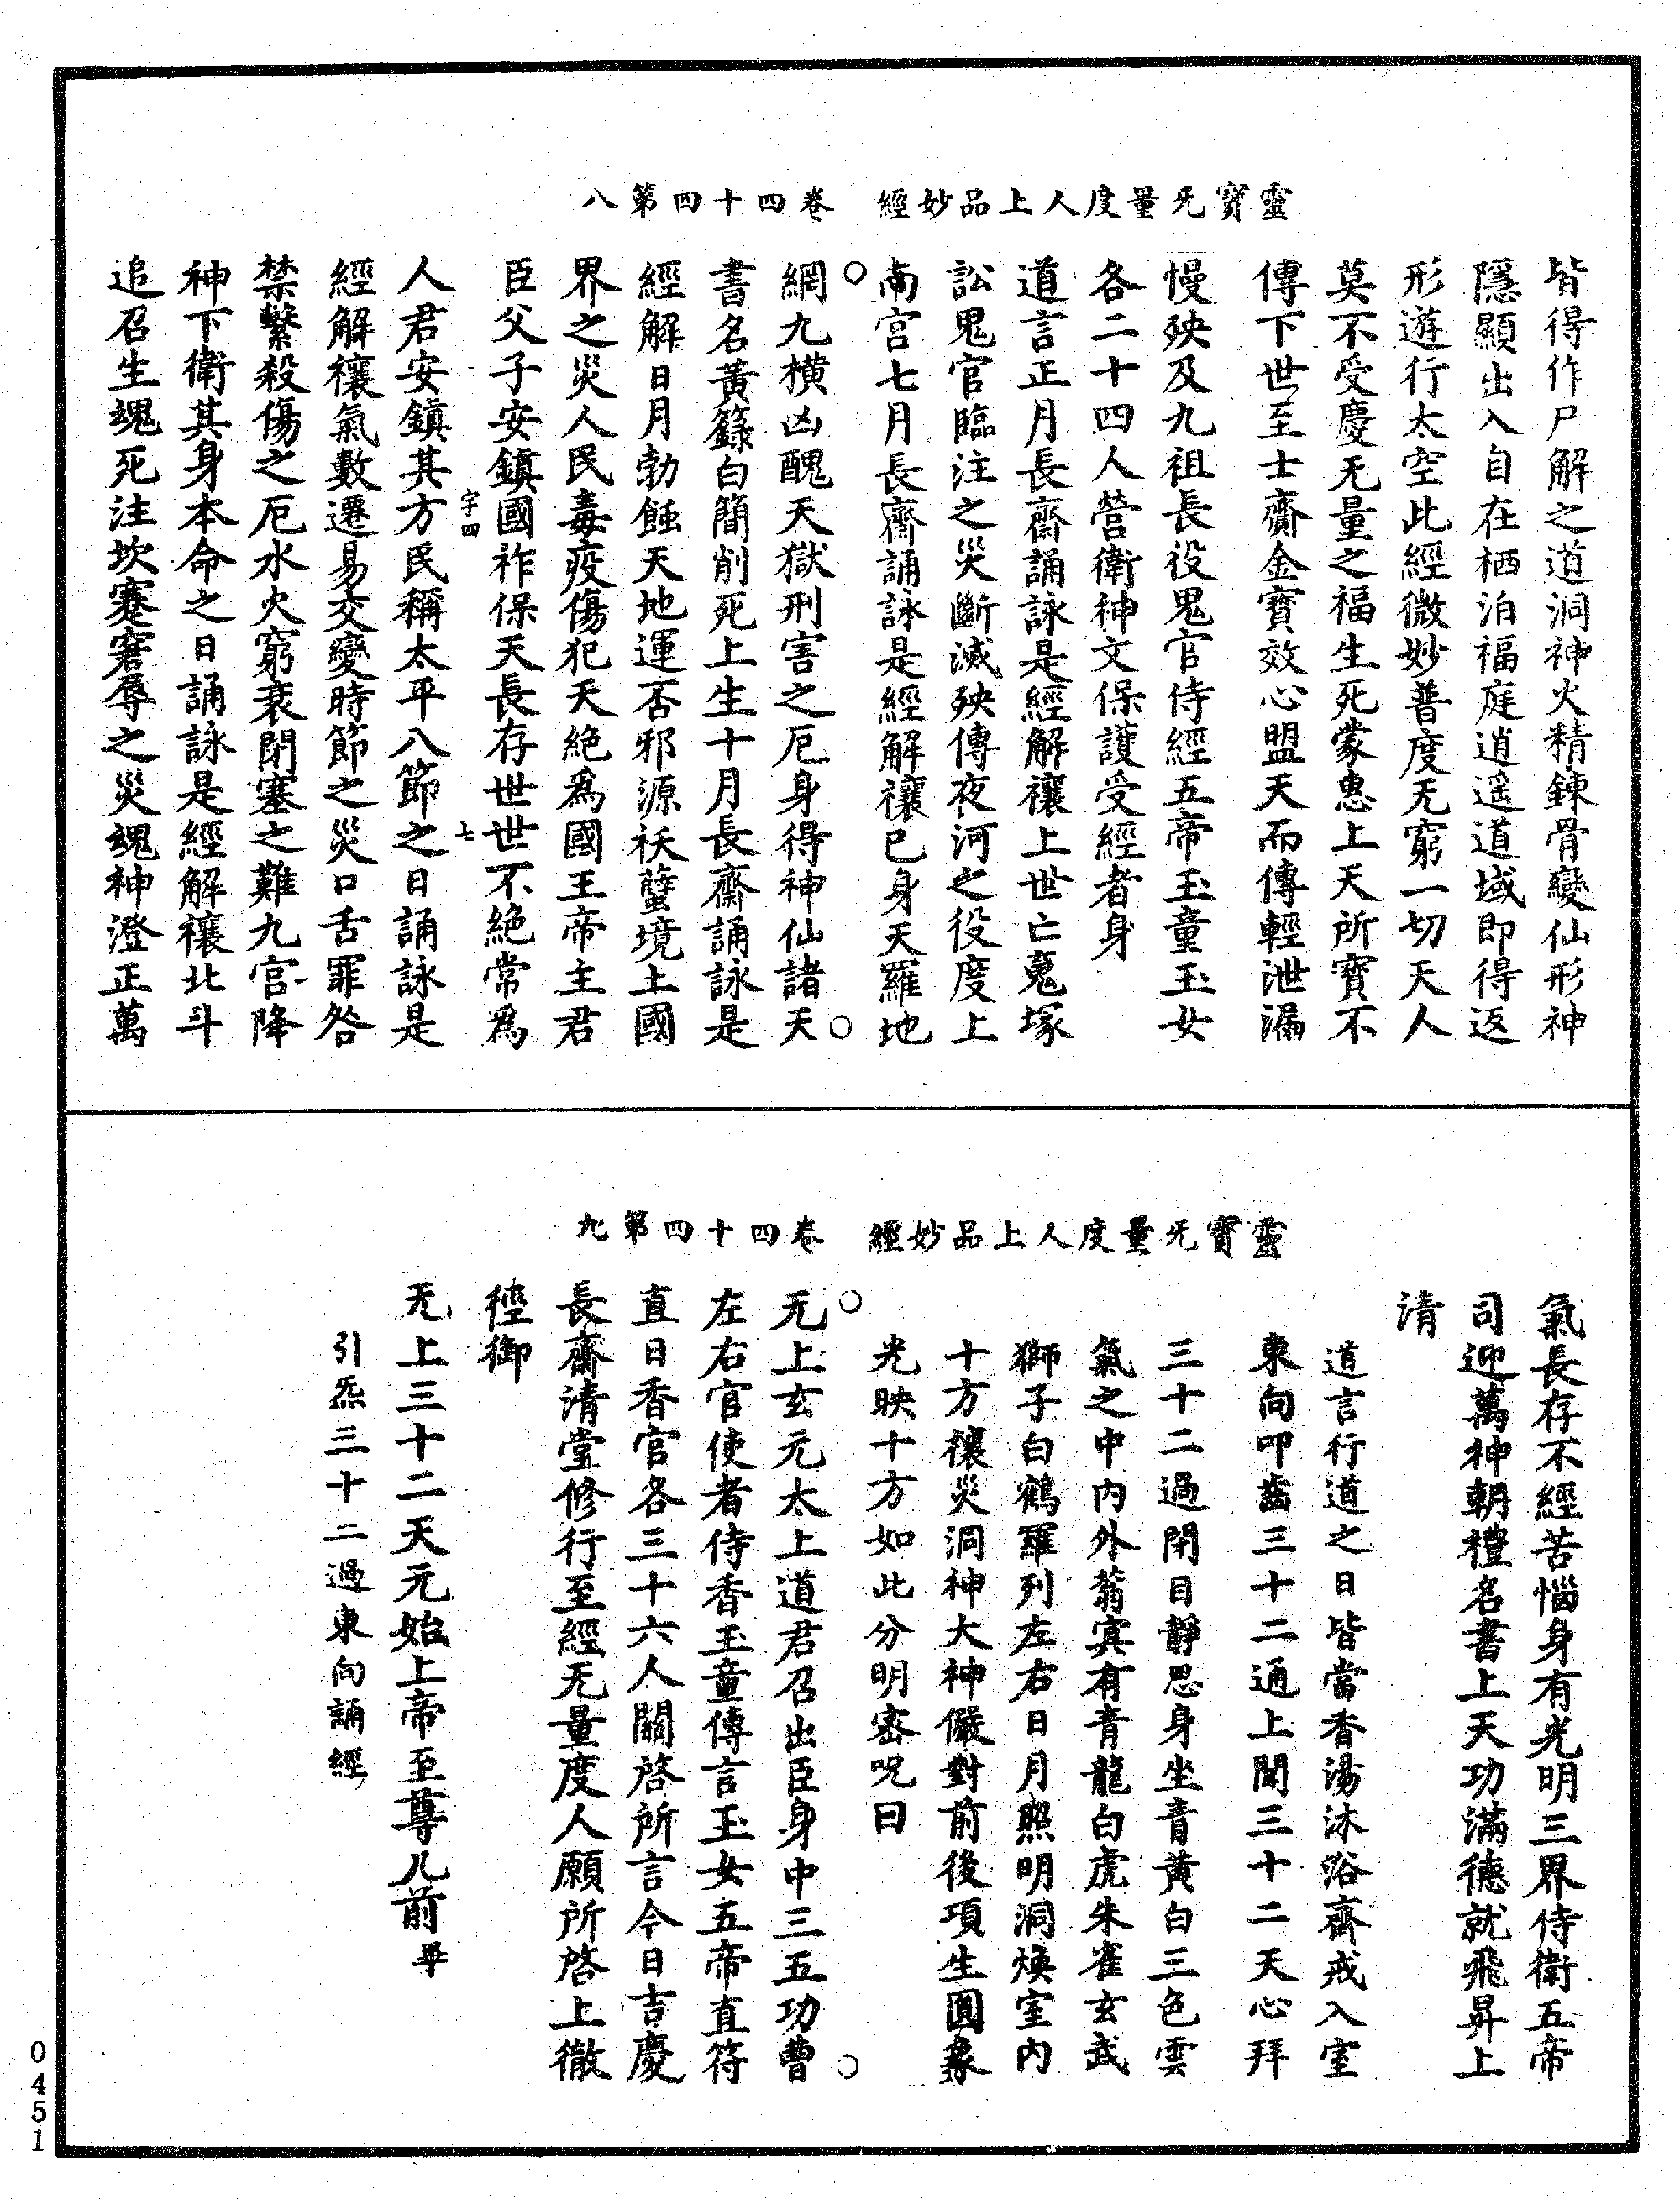 靈寶无量度人上品妙經　卷四十四第八
皆得作尸解之道洞神火精鍊骨變仙形神
隱顯出入自在栖泊福庭逍遥道域即得返
形遊行太空此經微妙普度无窮一切天人
莫不受慶无量之福生死蒙惠上天所寶不
傳下世至士齎金寶效心盟天而傳輕泄漏
慢殃及九祖長役鬼官侍經五帝玉童玉女
各二十四人營衛神文保護受經者身
道言正月長齋誦詠是經解禳上世亡䰟塚
訟鬼官臨注之災斷滅殃傳夜河之役度上
南宫七月長齋誦詠是經解禳已身天羅地
網九横凶醜天獄刑害之厄身得神仙諸天
書名黃籙白簡削死上生十月長齋誦詠是
經解日月勃蝕天地運否邪源祆孽境土國
界之災人民毒疫傷犯天絕爲國王帝主君
臣父子安鎮國祚保天長存世世不絕常爲
字四　七
人君安鎮其方民稱太平八節之日誦詠是
經解禳氣數遷易交變時節之災口舌罪咎
禁繫殺傷之厄水火窮衰閉塞之難九官降
神下衛其身本命之日誦詠是經解禳北斗
追召生魂死注坎蹇窘辱之災魂神澄正萬
靈寶无量度人上品妙經　卷四十四第九
氣長存不經苦惱身有光明三界侍衛五帝
司迎萬神朝禮名書上天功滿德就飛昇上
清
道言行道之日皆當香湯沐浴齋戒入室
東向叩齒三十二通上聞三十二天心拜
三十二過閉目靜思身坐青黃白三色雲
氣之中內外蓊寞有青龍白虎朱雀玄武
獅子白鶴羅列左右日月照明洞煥室內
十方禳災洞神大神儼對前後項生圓象
光映十方如此分明密呪曰
无上玄元太上道君召出臣身中三五功曹
左右官使者侍香玉童傳言玉女五帝直符
直日香官各三十六人關啓所言今日吉慶
長齋清堂修行至經无量度人願所啓上徹
徑御
无上三十二天元始上帝至尊几前畢
引炁三十二過東向誦經
0451